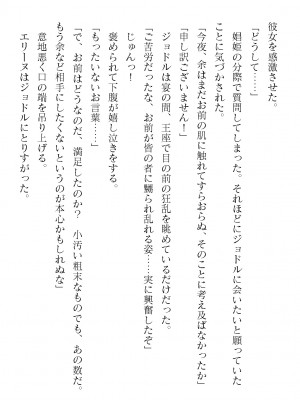 彼女を感激させた。
「どうして……」
娼姫の分際で質問してしまった。それほどにジョドルに会いたいと願っていた
ことに気づかされた。
「今夜、余はまだお前の肌に触れてすらおらぬ、そのことに考え及ばなかったか」
「申し訳ございません！」
ジョドルは宴の間、王座で目の前の狂乱を眺めているだけだった。
「ご苦労だったな、お前が皆の者に嬲られ乱れる姿……実に興奮したぞ」
じゅんっ！
「もったいないお言葉……」
褒められて下腹が嬉し泣きをする。
「で、お前はどうなのだ、満足したのか？　小汚い粗末なものでも、あの数だ。
もう余など相手にしたくないというのが本心かもしれぬな」
意地悪く口の端を吊り上げる。
エリーヌはジョドルにとりすがった。